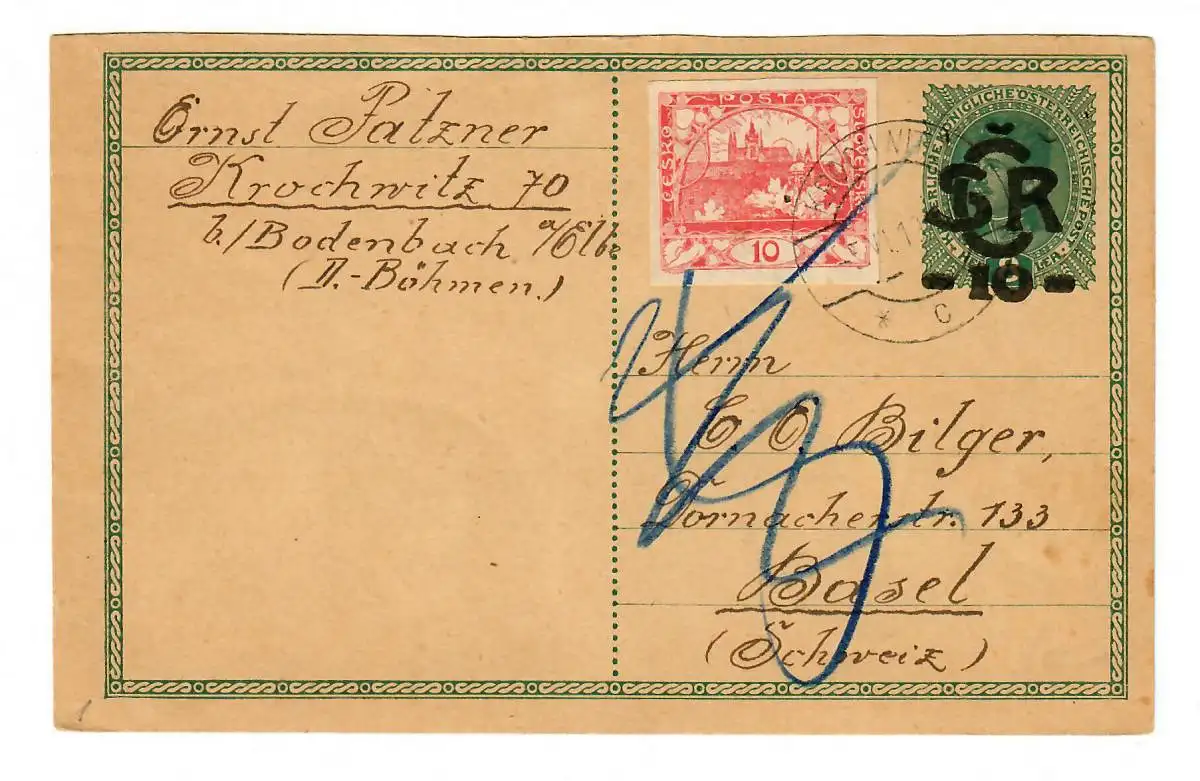 Ernst Patzner
Krochwitz 70
b./Bodenbach a/Elbe
(D.-Böhmen.)
POSTA
ČESKO
SLOVENSKÁ
10
KAISERLICHE KÖNIGLICHE ÖSTERREICHISCHE POST
ČSR
- 10 -
* C
Herrn
C. O. Bilger,
Dornacherstr. 133
Basel
(Schweiz)